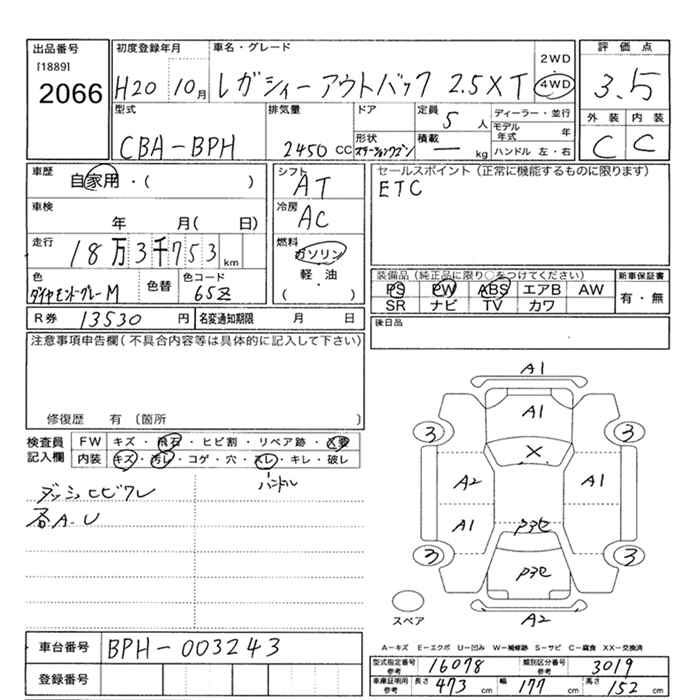 出品番号 初度登録年月 車名・グレード 評価点
[1889]
2066
H20 10月 レガシィー アウトバック 2.5XT
2WD
4WD
3.5
外装 内装
C C
型式 排気量 ドア 定員 ディーラー・並行
CBA-BPH 2450CC 5人
モデル年式 年
形状 ステーションワゴン 積載 — kg ハンドル 左・右
車歴 自家用・( )
シフト AT
セールスポイント(正常に機能するものに限ります)
ETC
車検 年 月( 日)
冷房 AC
走行 18万3千753km
燃料 ガソリン
軽・油
( )
色 ダイヤモンドグレーM 色替 色コード 65Z
装備品(純正品に限り○をつけてください) 新車保証書
PS PW ABS エアB AW 有・無
SR ナビ TV カワ
R券 13530円 名変通知期限 月 日
後日品
注意事項申告欄(不具合内容等は具体的に記入して下さい)
修復歴 有 〔箇所 〕
検査員 FW キズ・飛石・ヒビ割・リペア跡・X要
記入欄 内装 キズ・汚レ・コゲ・穴・スレ・キレ・破レ
ハンドル
ダッシュヒビワレ
各A.U
A1
A1
3 3
X
A2 A1
A1
P3E
3 3
P3E
スペア
A2
A-キズ E-エクボ U-凹み W-補修跡 S-サビ C-腐食 XX-交換済
車台番号 BPH-003243
登録番号
型式指定番号 参考 16078 類別区分番号 参考 3019
車庫証明用 参考 長さ 473cm 幅 177cm 高さ 152cm